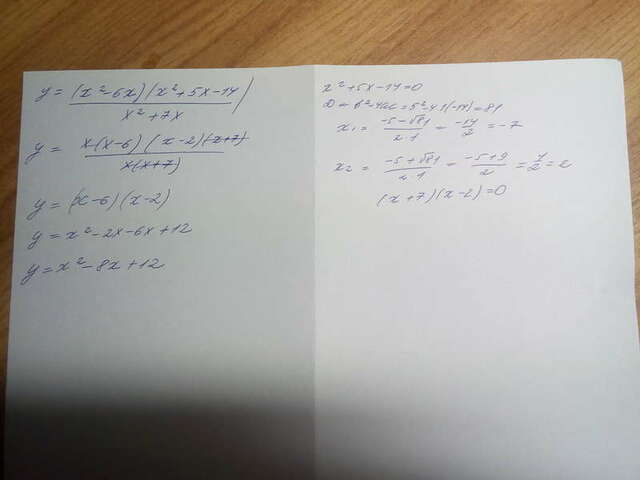 y = (x²-6x)(x²+5x-14)
x²+7x
y = x(x-6)(x-2)(x+7)
x(x+7)
y = (x-6)(x-2)
y = x²-2x-6x+12
y = x²-8x+12
x²+5x-14=0
D = b²-4ac = 5²-4·1·(-14) = 81
x₁ = -5-√81 / 2·1 = -14/2 = -7
x₂ = -5+√81 / 2·1 = -5+9 / 2 = 4/2 = 2
(x+7)(x-2)=0